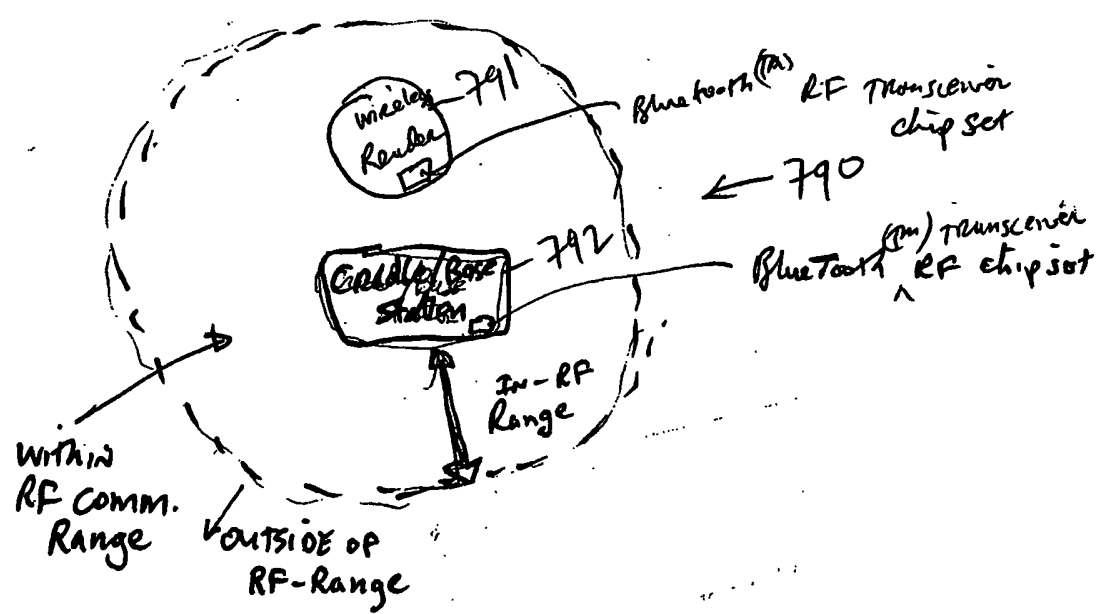 Wireless
Reader
791
Bluetooth (TM) RF Transceiver
chip set
790
Cradle/Base
Station
792
(TM) Transceiver
BlueTooth ^ RF chip set
In-RF
Range
Within
RF Comm.
Range
Outside of
RF-Range